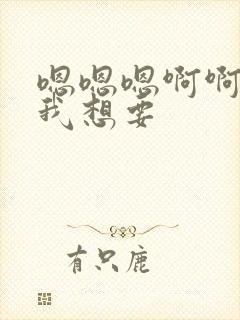 嗯嗯嗯啊啊
我想要
有只鹿